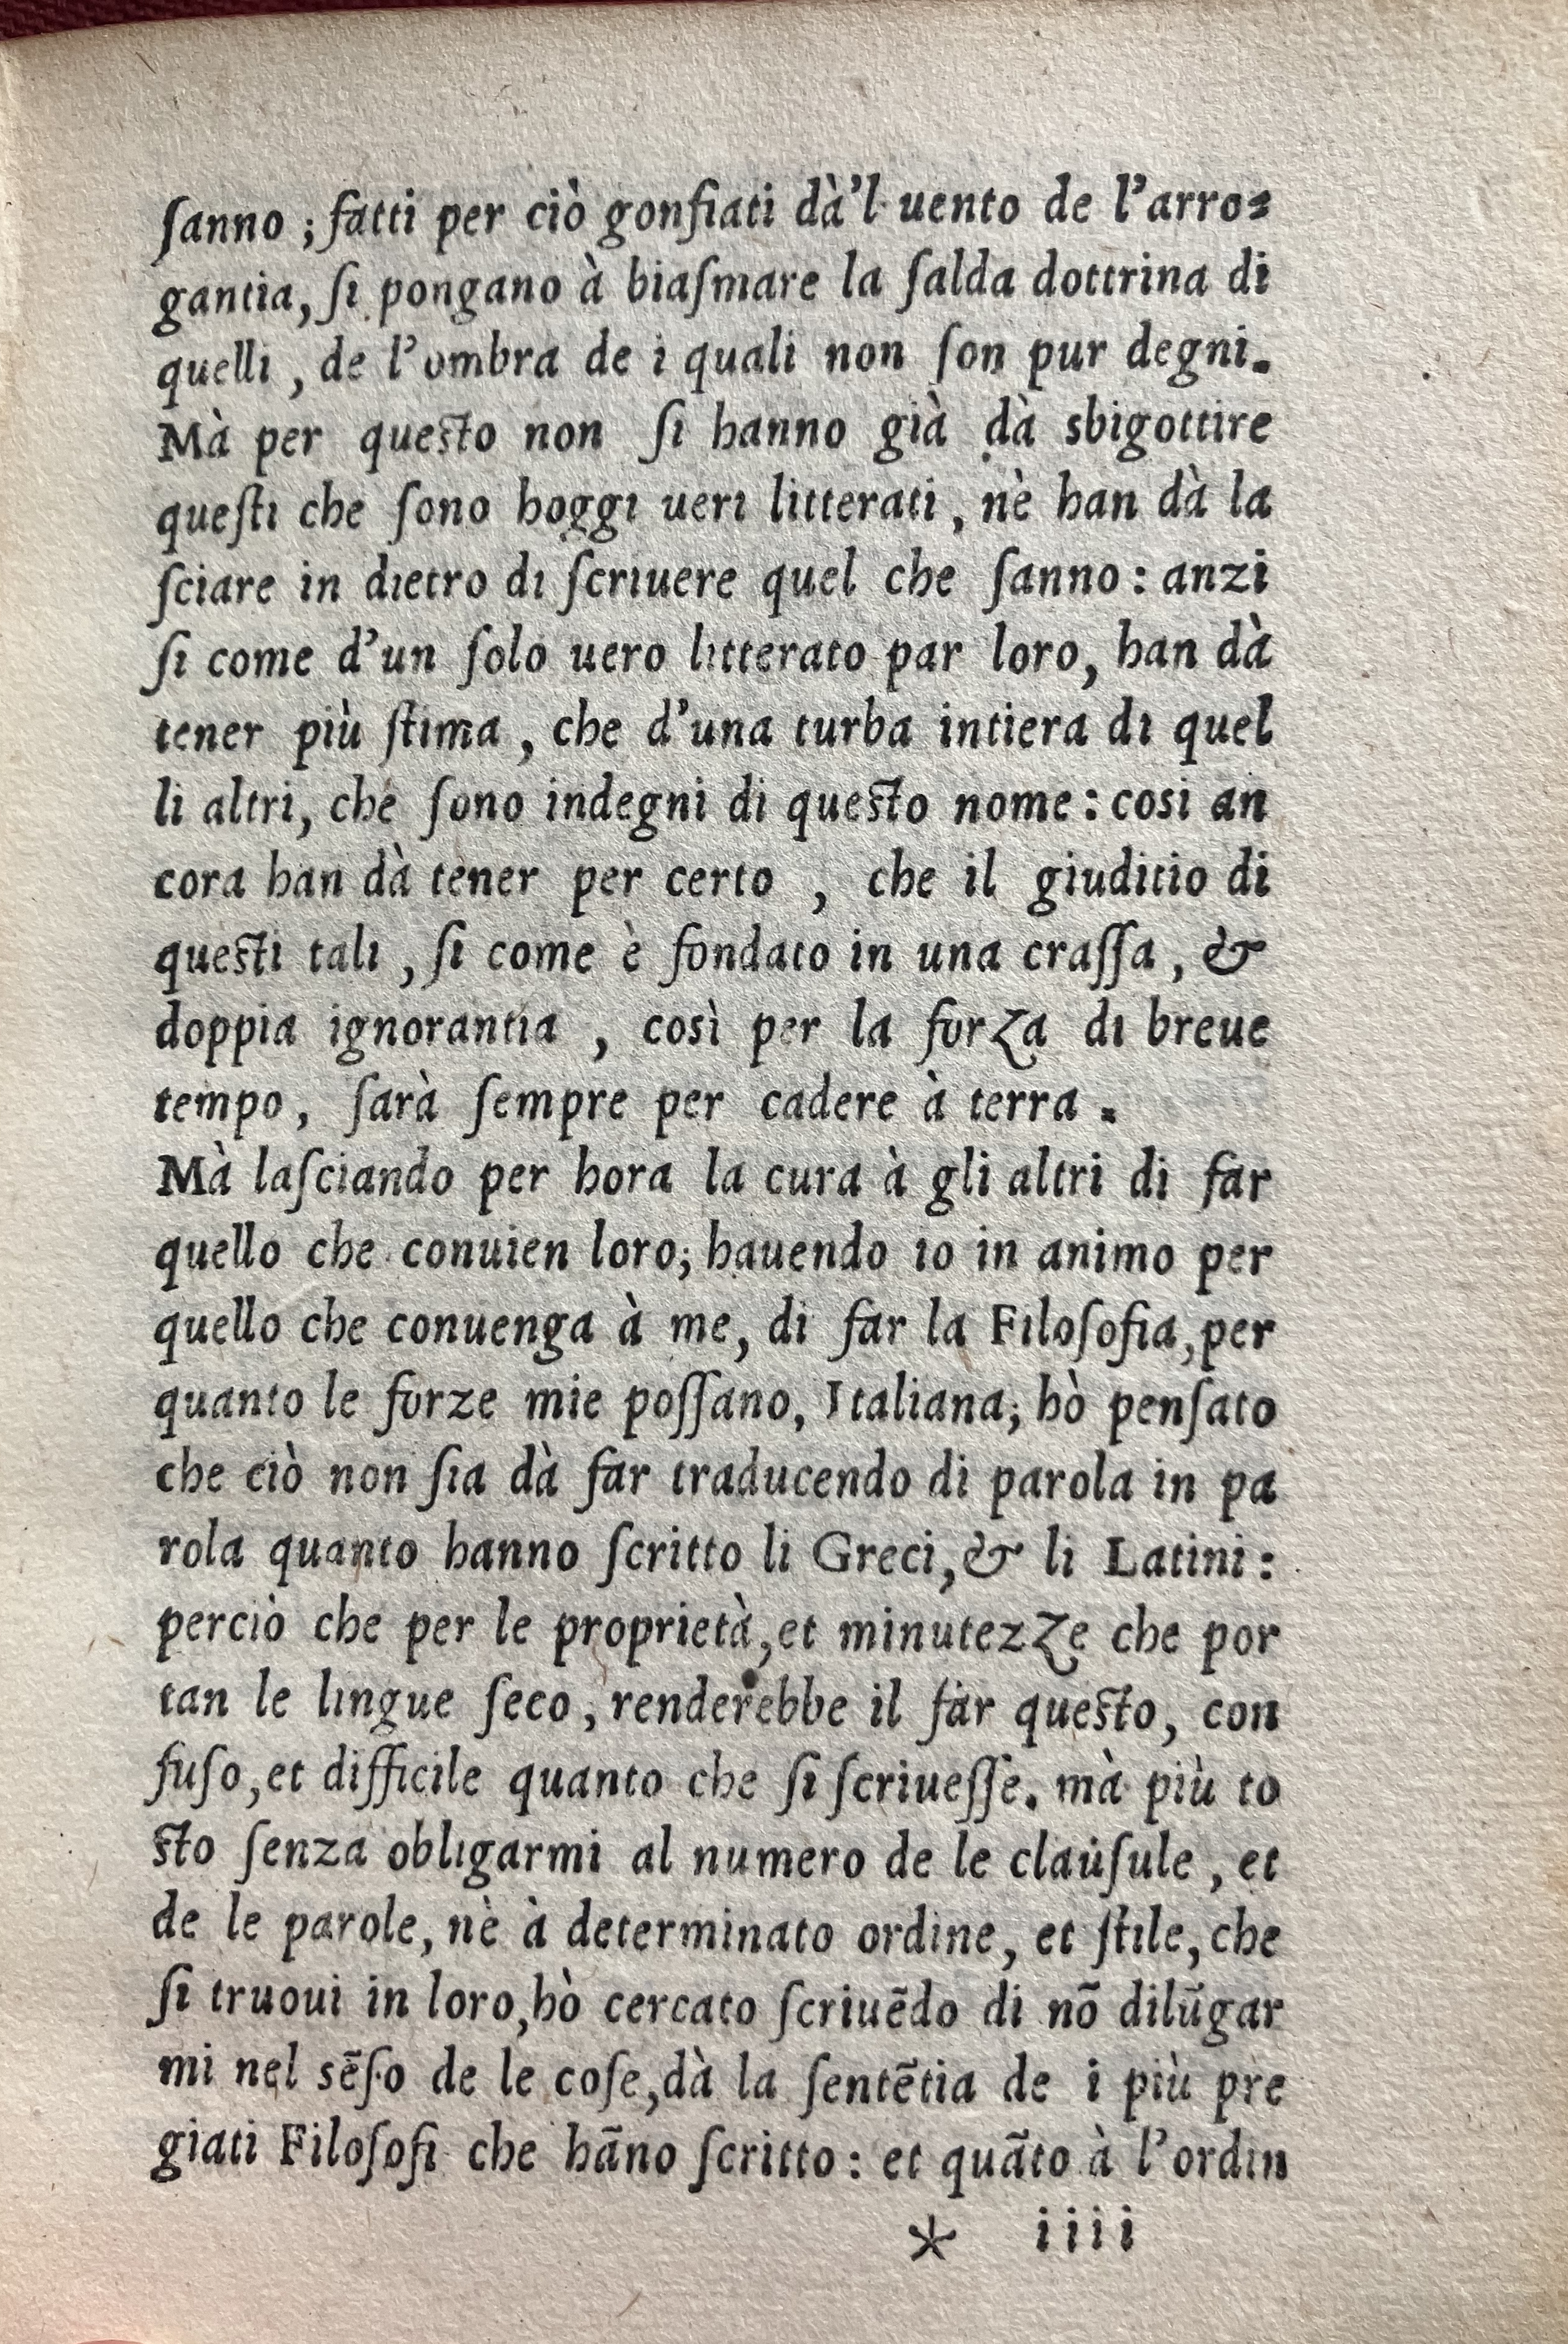 ſanno ; fatti per ciò gonfiati dà'l uento de l'arro-
gantia, ſi pongano à biaſmare la ſalda dottrina di
quelli , de l'ombra de i quali non ſon pur degni.
Mà per queſto non ſi hanno già dà sbigottire
queſti che ſono hoggi ueri litterati , nè han dà la
ſciare in dietro di ſcriuere quel che ſanno : anzi
ſi come d'un ſolo uero litterato par loro, han dà
tener più ſtima , che d'una turba intiera di quel
li altri, che ſono indegni di queſto nome : cosi an
cora han dà tener per certo , che il giuditio di
queſti tali , ſi come è fondato in una craſſa , &
doppia ignorantia , così per la forza di breue
tempo , ſarà ſempre per cadere à terra .
Mà laſciando per hora la cura à gli altri di far
quello che conuien loro; hauendo io in animo per
quello che conuenga à me, di far la Filoſofia, per
quanto le forze mie poſſano, Italiana; hò penſato
che ciò non ſia dà far traducendo di parola in pa
rola quanto hanno ſcritto li Greci, & li Latini :
perciò che per le proprietà, et minutezze che por
tan le lingue ſeco , renderebbe il far queſto, con
fuſo, et difficile quanto che ſi ſcriueſſe. mà più to
ſto ſenza obligarmi al numero de le clauſule , et
de le parole, nè à determinato ordine, et ſtile, che
ſi truoui in loro, hò cercato ſcriuēdo di nō dilūgar
mi nel sēſo de le coſe, dà la ſentētia de i più pre
giati Filoſofi che hāno ſcritto : et quāto à l'ordin
* iiii